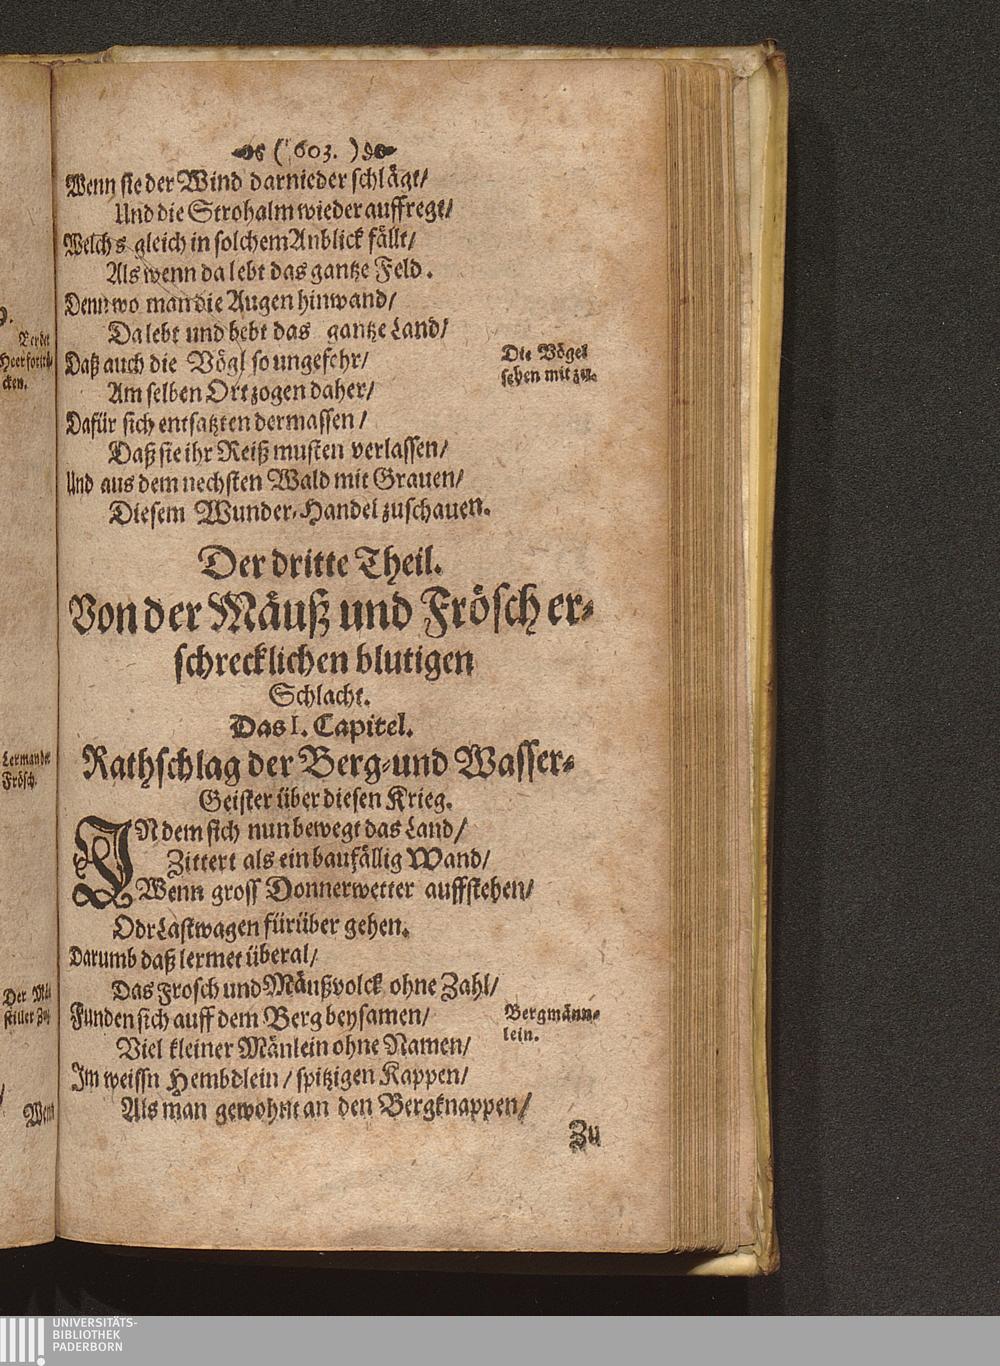 ( 603. )
Wenn sie der Wind darnieder schlägt/
Und die Strohalm wieder auffregt/
Welchs gleich in solchem Anblick fällt/
Als wenn da lebt das gantze Feld.
Denn wo man die Augen hinwand/
Da lebt und bebt das gantze Land/
Daß auch die Vögl so ungefehr/
Am selben Ort zogen daher/
Die Vögel
sehen mit zu.
Dafür sich entsatzten dermassen/
Daß sie ihr Reiß musten verlassen/
Und aus dem nechsten Wald mit Grauen/
Diesem Wunder-Handel zuschauen.
Der dritte Theil.
Von der Mäuß und Frösch er-
schrecklichen blutigen
Schlacht.
Das I. Capitel.
Rathschlag der Berg-und Wasser-
Geister über diesen Krieg.
IN dem sich nun bewegt das Land/
Zittert als ein baufällig Wand/
Wenn gross Donnerwetter auffstehen/
Odr Lastwagen fürüber gehen.
Darumb daß lermet überal/
Das Frosch und Mäußvolck ohne Zahl/
Funden sich auff dem Berg beysamen/
Viel kleiner Mänlein ohne Namen/
Bergmänn-
lein.
Im weissn Hembdlein/ spitzigen Kappen/
Als man gewohnt an den Bergknappen/
Zu
Heer fortrü-
cken.
Lerman der
Frösch.
Der
Wenn
UNIVERSITÄTS-
BIBLIOTHEK
PADERBORN